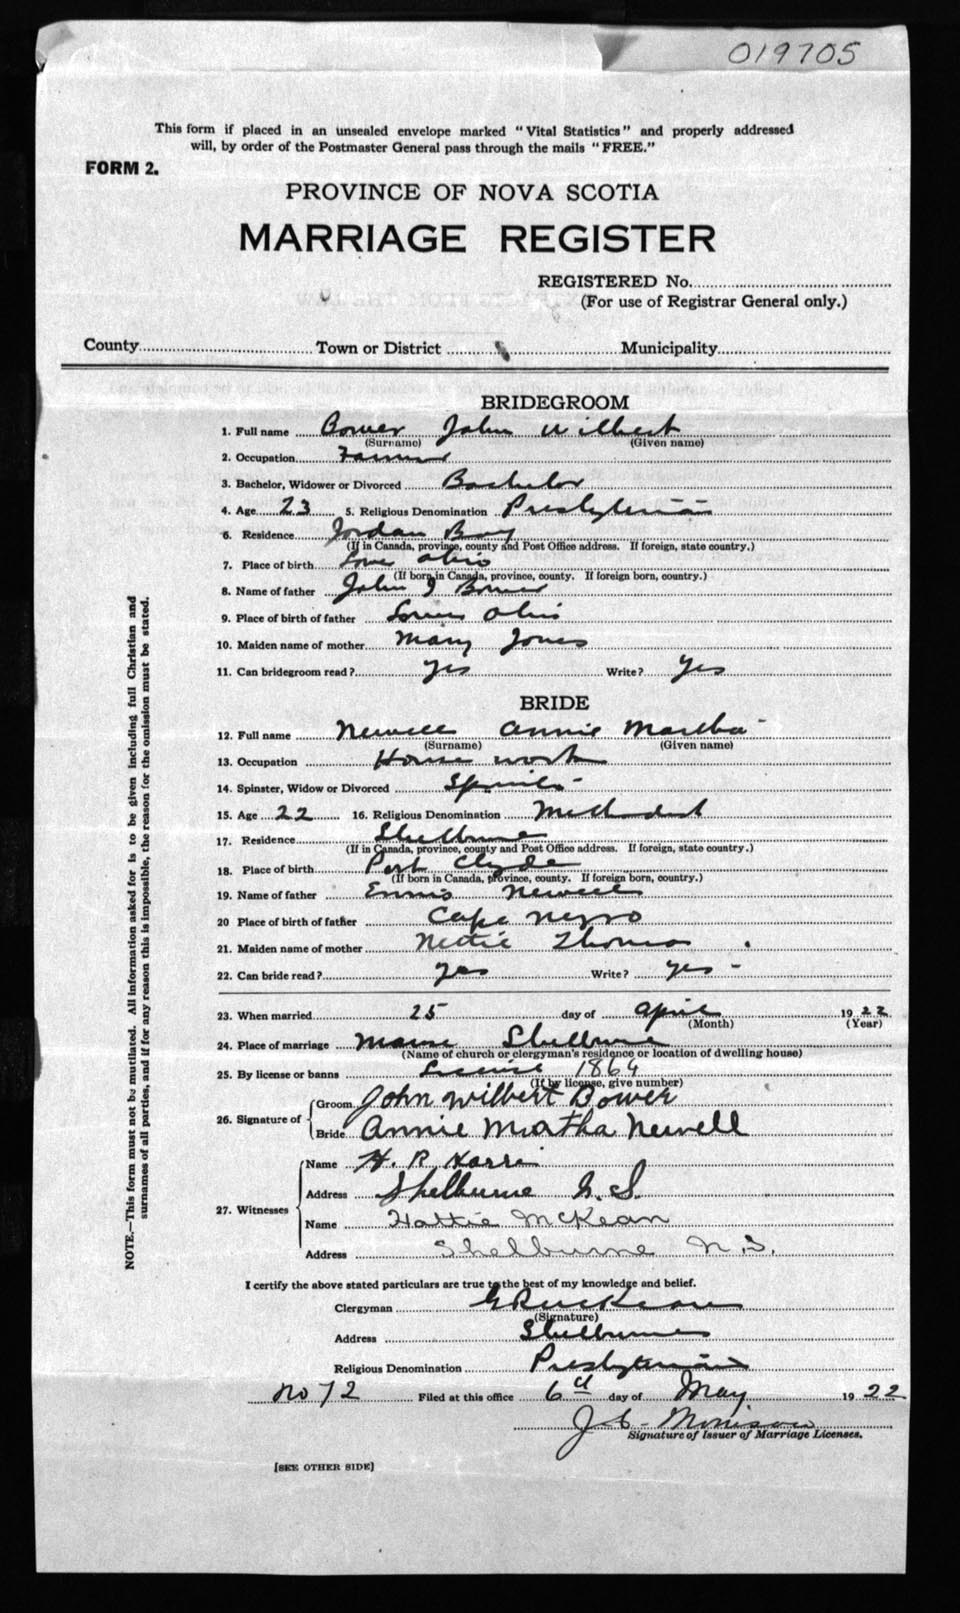 019705
This form if placed in an unsealed envelope marked "Vital Statistics" and properly addressed
will, by order of the Postmaster General pass through the mails "FREE."
FORM 2.
PROVINCE OF NOVA SCOTIA
MARRIAGE REGISTER
REGISTERED No.
(For use of Registrar General only.)
County Town or District Municipality
BRIDEGROOM
1. Full name Bower John Wilbert
(Surname) (Given name)
2. Occupation Farmer
3. Bachelor, Widower or Divorced Bachelor
4. Age 23 5. Religious Denomination Presbyterian
6. Residence Jordan Bay
(If in Canada, province, county and Post Office address. If foreign, state country.)
7. Place of birth Ohio
(If born in Canada, province, county. If foreign born, country.)
8. Name of father John J Bower
9. Place of birth of father Ohio
10. Maiden name of mother Mary Jones
11. Can bridegroom read? Yes Write? Yes
BRIDE
12. Full name Newell Annie Martha
(Surname) (Given name)
13. Occupation House work
14. Spinster, Widow or Divorced
15. Age 22 16. Religious Denomination Methodist
17. Residence Shelburne
(If in Canada, province, county and Post Office address. If foreign, state country.)
18. Place of birth Port Clyde
(If born in Canada, province, county. If foreign born, country.)
19. Name of father Newell
20 Place of birth of father Cape Negro
21. Maiden name of mother Nettie Thomas
22. Can bride read? Yes Write? Yes -
23. When married 25 day of April 1922
(Month) (Year)
24. Place of marriage Manse Shelburne
(Name of church or clergyman's residence or location of dwelling house)
25. By license or banns License 1864
(If by license, give number)
26. Signature of Groom John Wilbert Bower
Bride Annie Martha Newell
27. Witnesses Name H. R.
Address Shelburne N.S.
Name Hattie McKean
Address Shelburne N.S.
I certify the above stated particulars are true to the best of my knowledge and belief.
Clergyman
(Signature)
Address Shelburne
Religious Denomination Presbyterian
No 72 Filed at this office 6th day of May 1922
Morrison
Signature of Issuer of Marriage Licenses.
[SEE OTHER SIDE]
NOTE.—This form must not be mutilated. All information asked for is to be given including full Christian and
surnames of all parties, and if for any reason this is impossible, the reason for the omission must be stated.